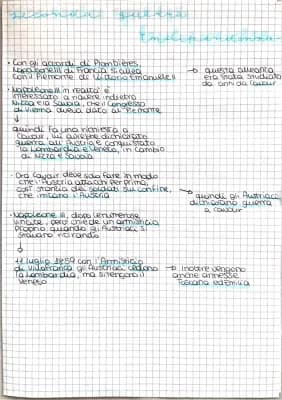 seconda guerra
Indipendenza
• Con gli accordi di Plombières,
Napoleone III di Francia si allea
con il Piemonte di Vittorio Emanuele II
→ questa alleanza
era stata studiata
da anni da Cavour
• Napoleone III in realtà è
interessato a riavere indietro
Nizza e la Savoia, che il Congresso
di Vienna aveva dato al Piemonte
↓
quindi fa una richiesta a
Cavour, lui avrebbe dichiarato
guerra all'Austria e conquistato
la Lombardia e Veneto, in cambio
di Nizza e Savoia
• Ora Cavour deve solo fare in modo
che l'Austria attacchi per prima,
così stanzia dei soldati sul confine,
che irritano l'Austria
→ quindi gli Austriaci
dichiarano guerra
a Cavour
• Napoleone III, dopo le numerose
vincite, però chiede un armistizio
proprio quando gli Austriaci si
stavano ritirando
↓
11 luglio 1859 con l'Armistizio
di Villafranca gli Austriaci cedono
la Lombardia, ma si tengono il
Veneto
→ Inoltre vengono
anche annesse
Toscana ed Emilia